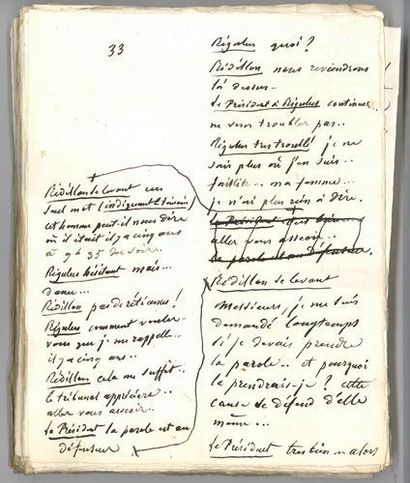 33
Régulus quoi ?
Rédillon nous reviendrons
là dessus..
Le Président à Régulus continuez
ne vous troublez pas..
Régulus tres troublé je ne
sais plus où j'en suis..
faillite.. ma femme...
je n'ai plus rien à dire.
Le Président
allez vous asseoir..
La parole est au Défenseur.
Rédillon se levant
Messieurs, je me suis
demandé longtemps
si je devais prendre
la parole.. et pourquoi
la prendrais-je ? cette
cause se défend d'elle
même...
Le Président tres bien.. alors
Rédillon se levant un
seul mot (indiquant le témoin)
cet homme peut-il nous dire
où il était il y a cinq ans
à 9h 35 du soir.
Régulus hésitant mais...
dame...
Rédillon pas de réticences !
Régulus comment voulez-
vous que je me rappelle..
il y a cinq ans..
Rédillon cela me suffit..
le tribunal appréciera..
allez vous asseoir..
Le Président la parole est au
défenseur